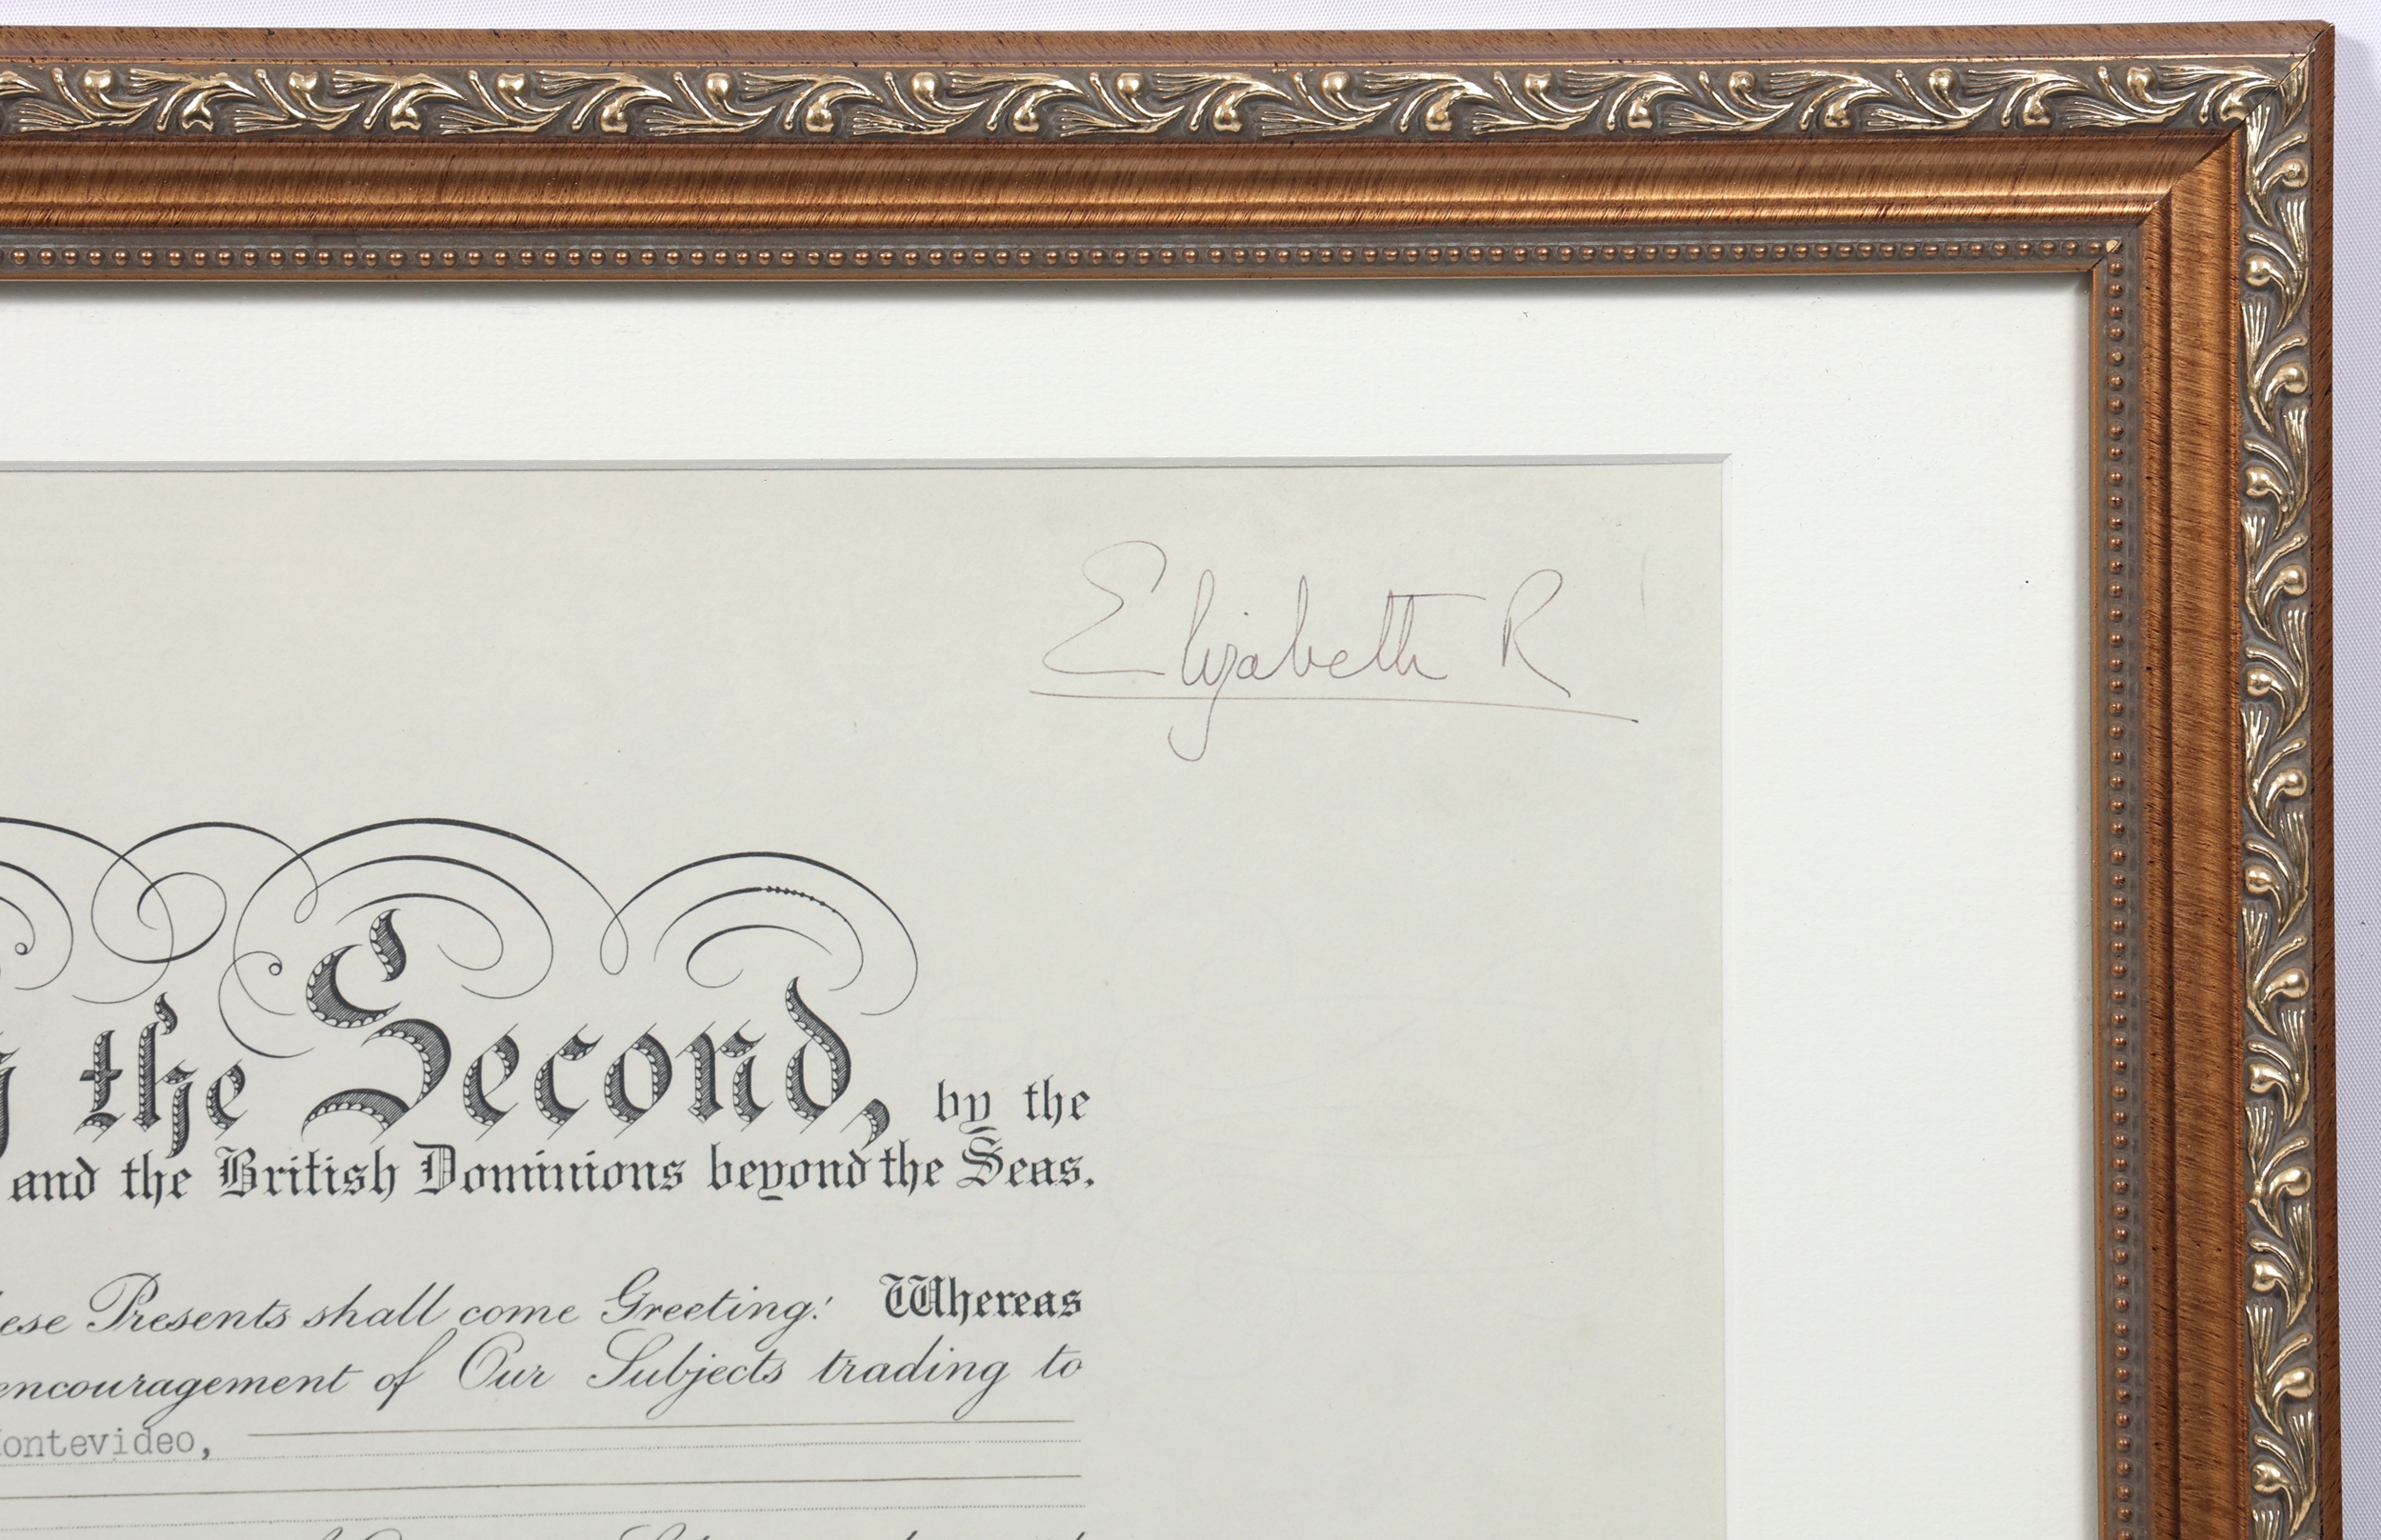 Elizabeth R
the Second, by the
and the British Dominions beyond the Seas.
Presents shall come Greeting: Whereas
encouragement of Our Subjects trading to
ontevideo,